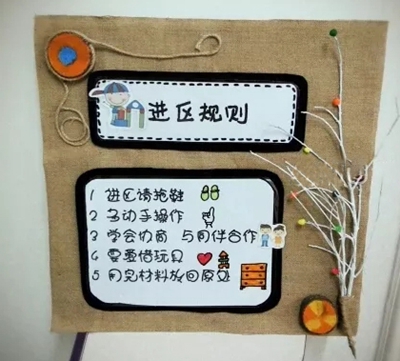 进区规则
1 进区请拖鞋
2 多动手操作
3 学会协商 与同伴合作
4 要爱惜玩具
5 用完材料放回原处